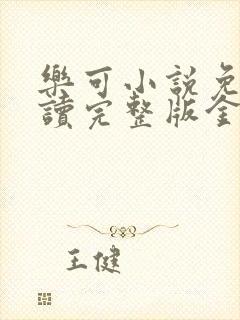 樂可小說免
讀完整版全
王健